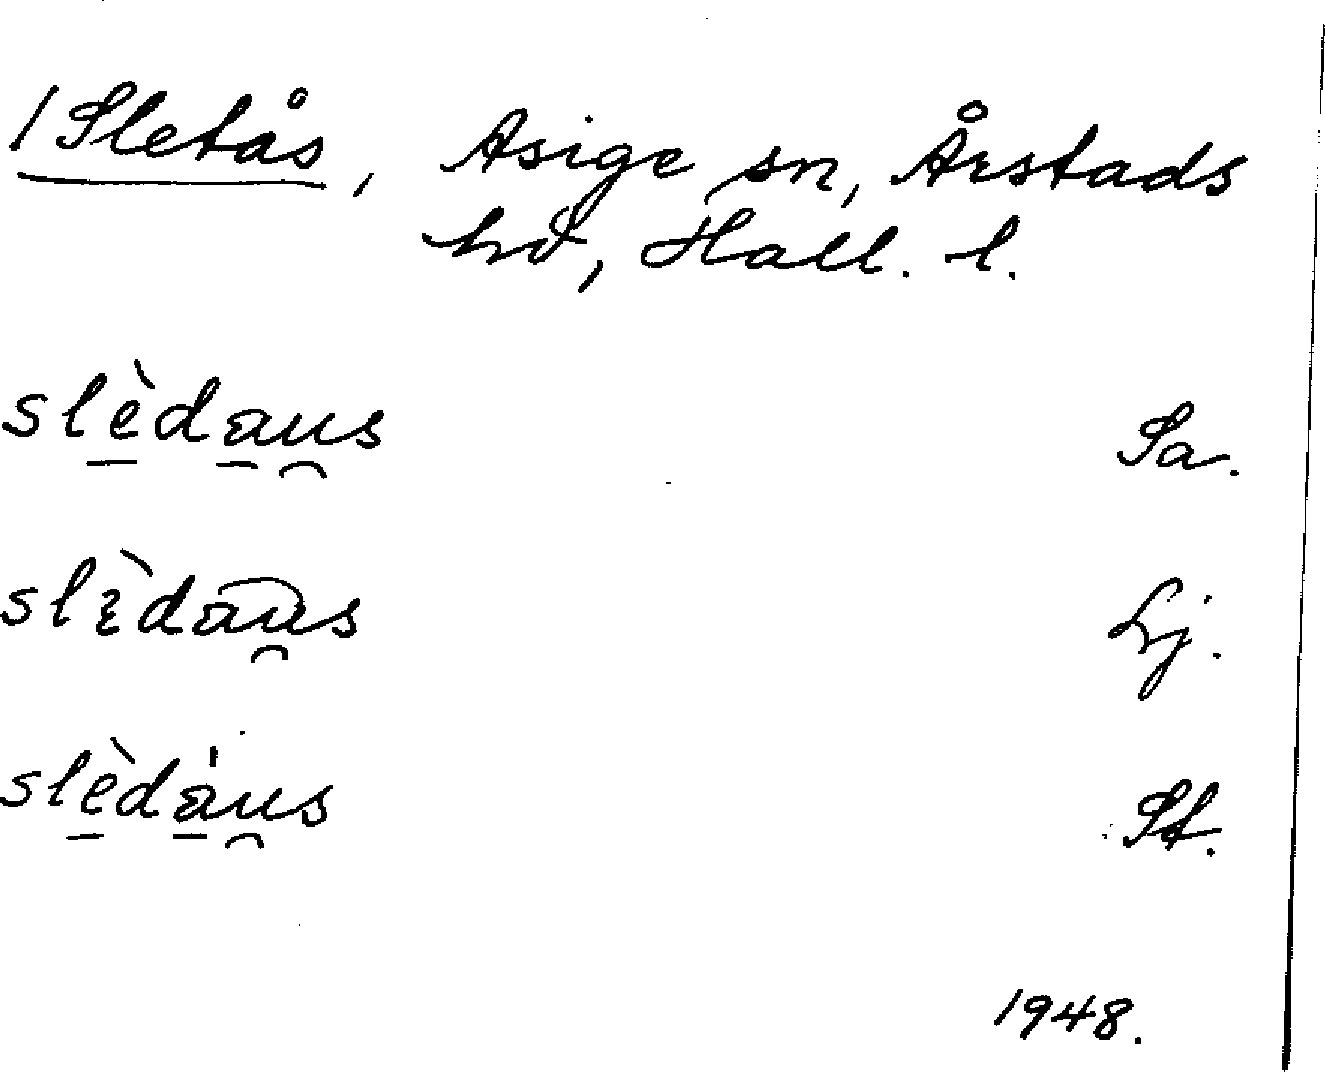 / Sletås, Asige sn, Årstads
hd, Hall. l.
slè̠da̠u̯s Sa.
slɛ̀dau̯s Lj.
slè̠dà̠u̯s St.
1948.